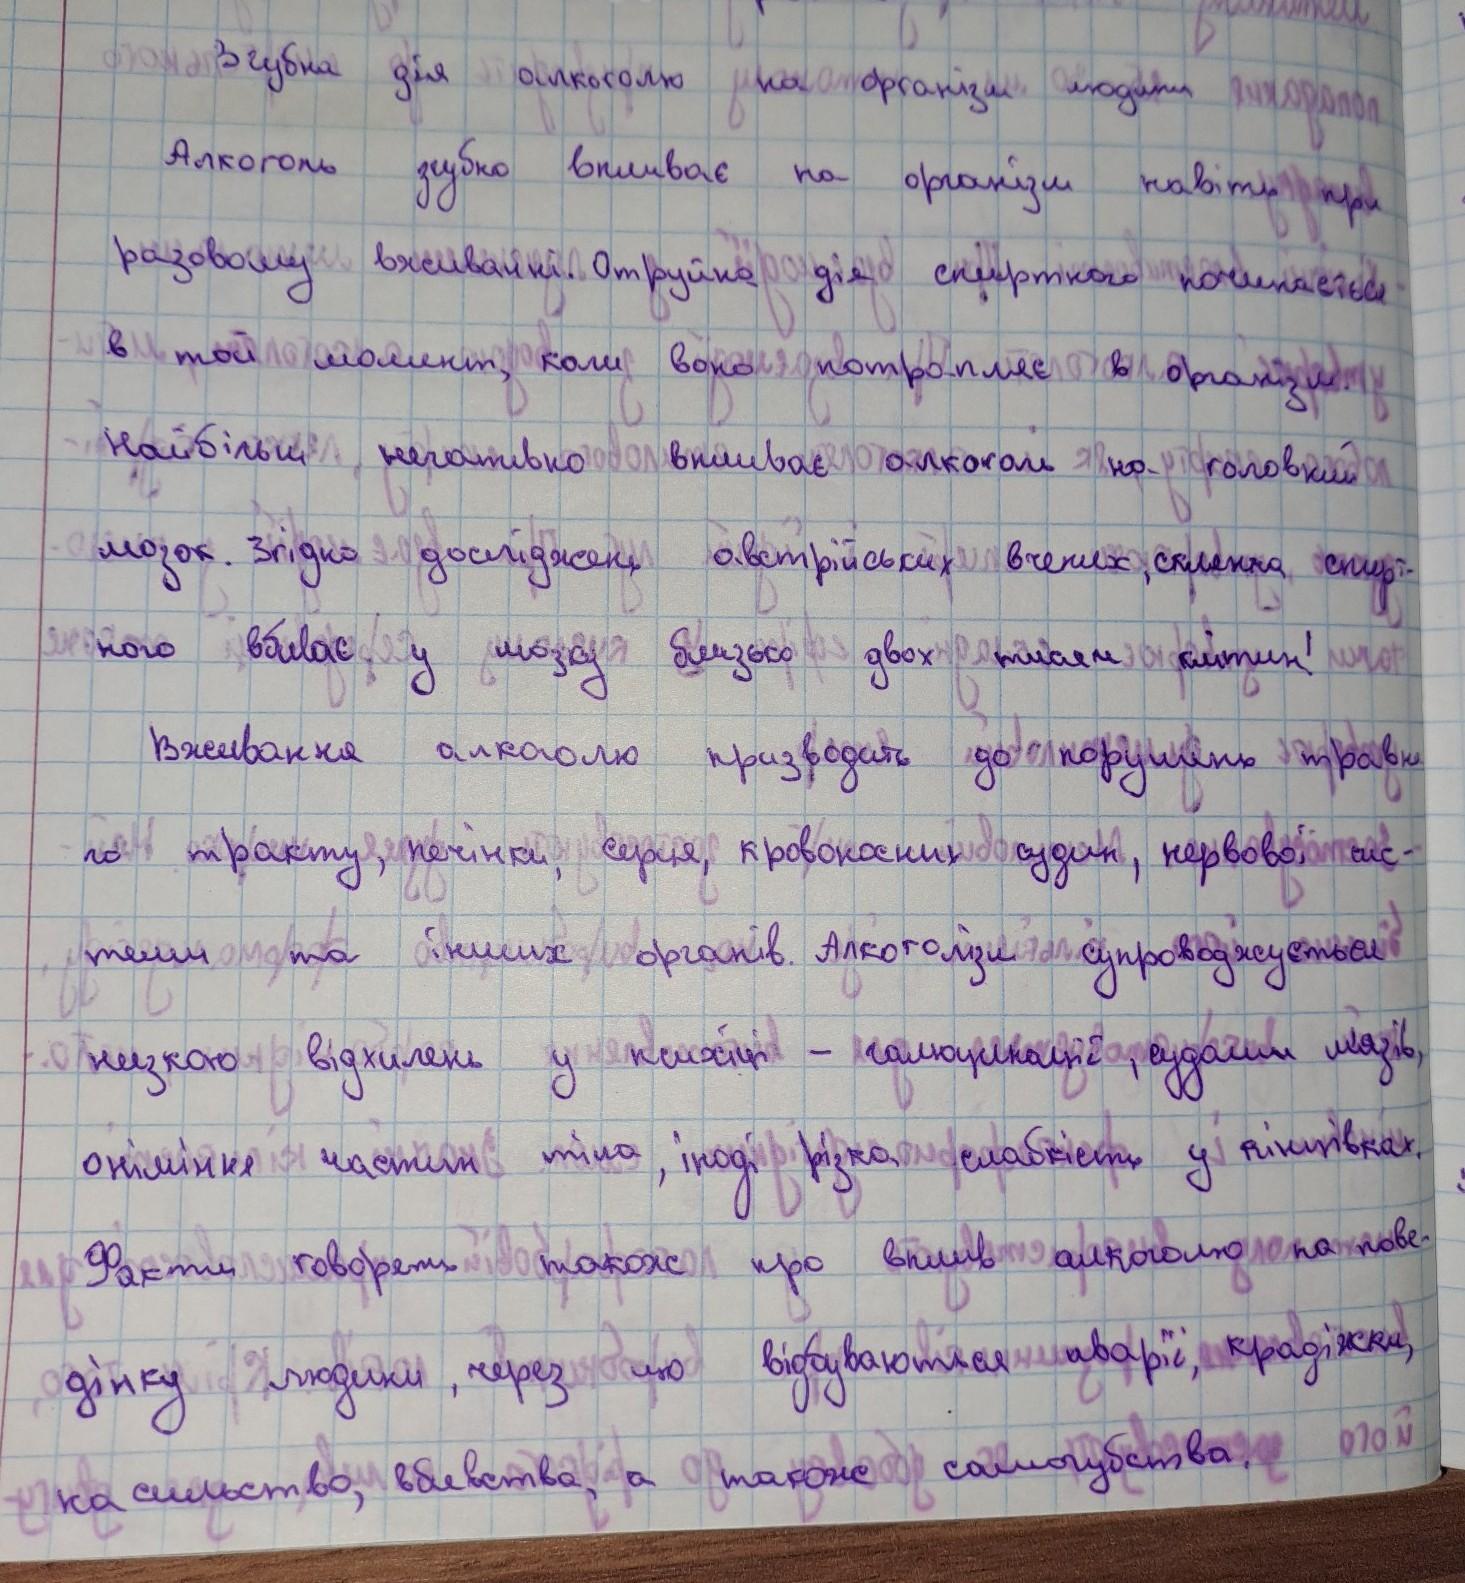 Згубна дія алкоголю на організм людини
Алкоголь згубно впливає на організм навіть при
разовому вживанні. Отруйна дія спиртного починається
в той момент, коли воно потрапляє в організм.
Найбільш негативно впливає алкоголь на головний
мозок. Згідно досліджень австрійських вчених, склянка спирт-
ного вбиває у мозку близько двох тисяч клітин!
Вживання алкоголю призводить до порушень травно
го тракту, печінки, серця, кровоносних судин, нервової сис-
теми та інших органів. Алкоголізм супроводжується
низкою відхилень у психіці – галюцинації, судоми м'язів,
оніміння частин тіла, іноді різка слабкість у кінцівках.
Факти говорять також про вплив алкоголю на пове-
дінку людини, через що відбуваються аварії, крадіжки,
насильство, вбивства, а також самогубства.